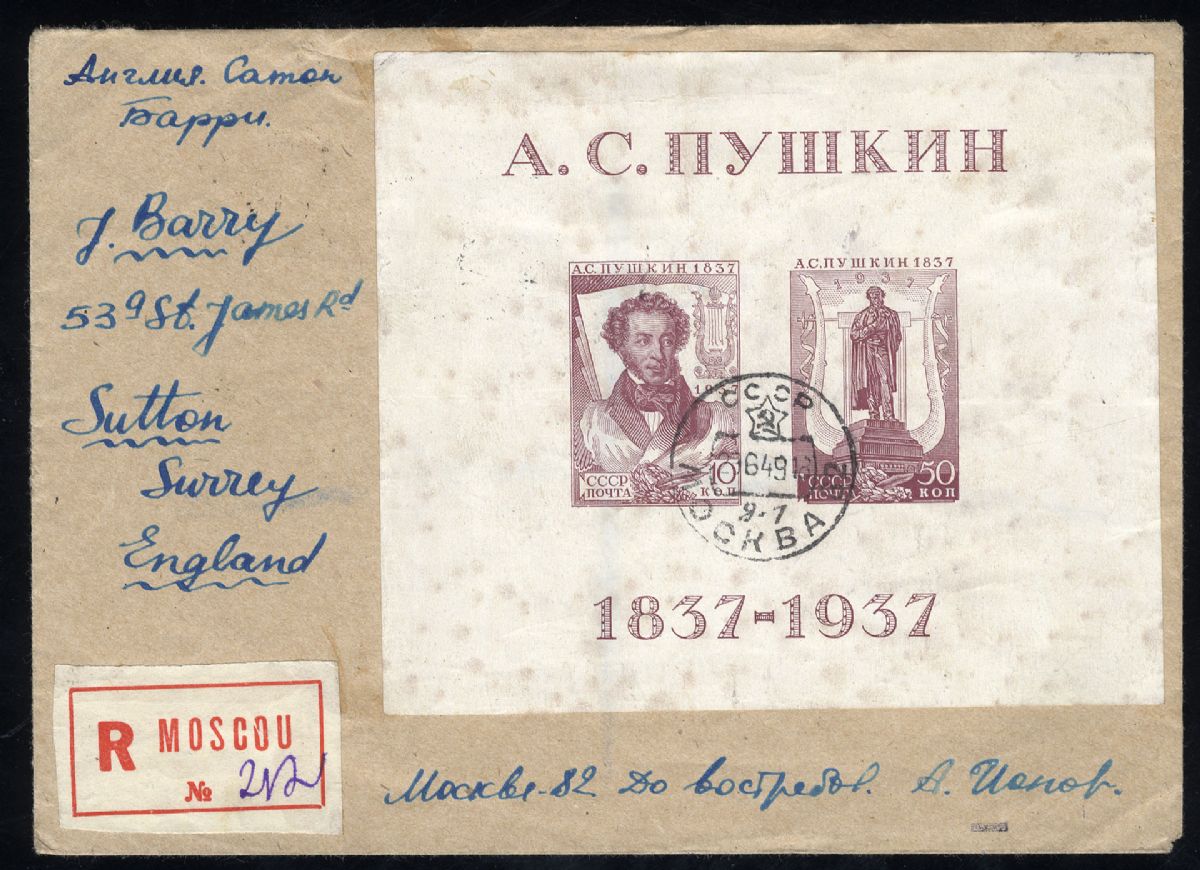 Англия. Сатон
Барри.
J. Barry
53ª St. James Rd
Sutton
Surrey
England
А.С.ПУШКИН
А.С.ПУШКИН 1837
10
СССР
ПОЧТА
КОП
А.С.ПУШКИН 1837
1937
50
СССР
ПОЧТА
КОП
СССР
649
9-7
МОСКВА
1837-1937
R MOSCOU
№
Москва-82 До востребов. А. Ионов.